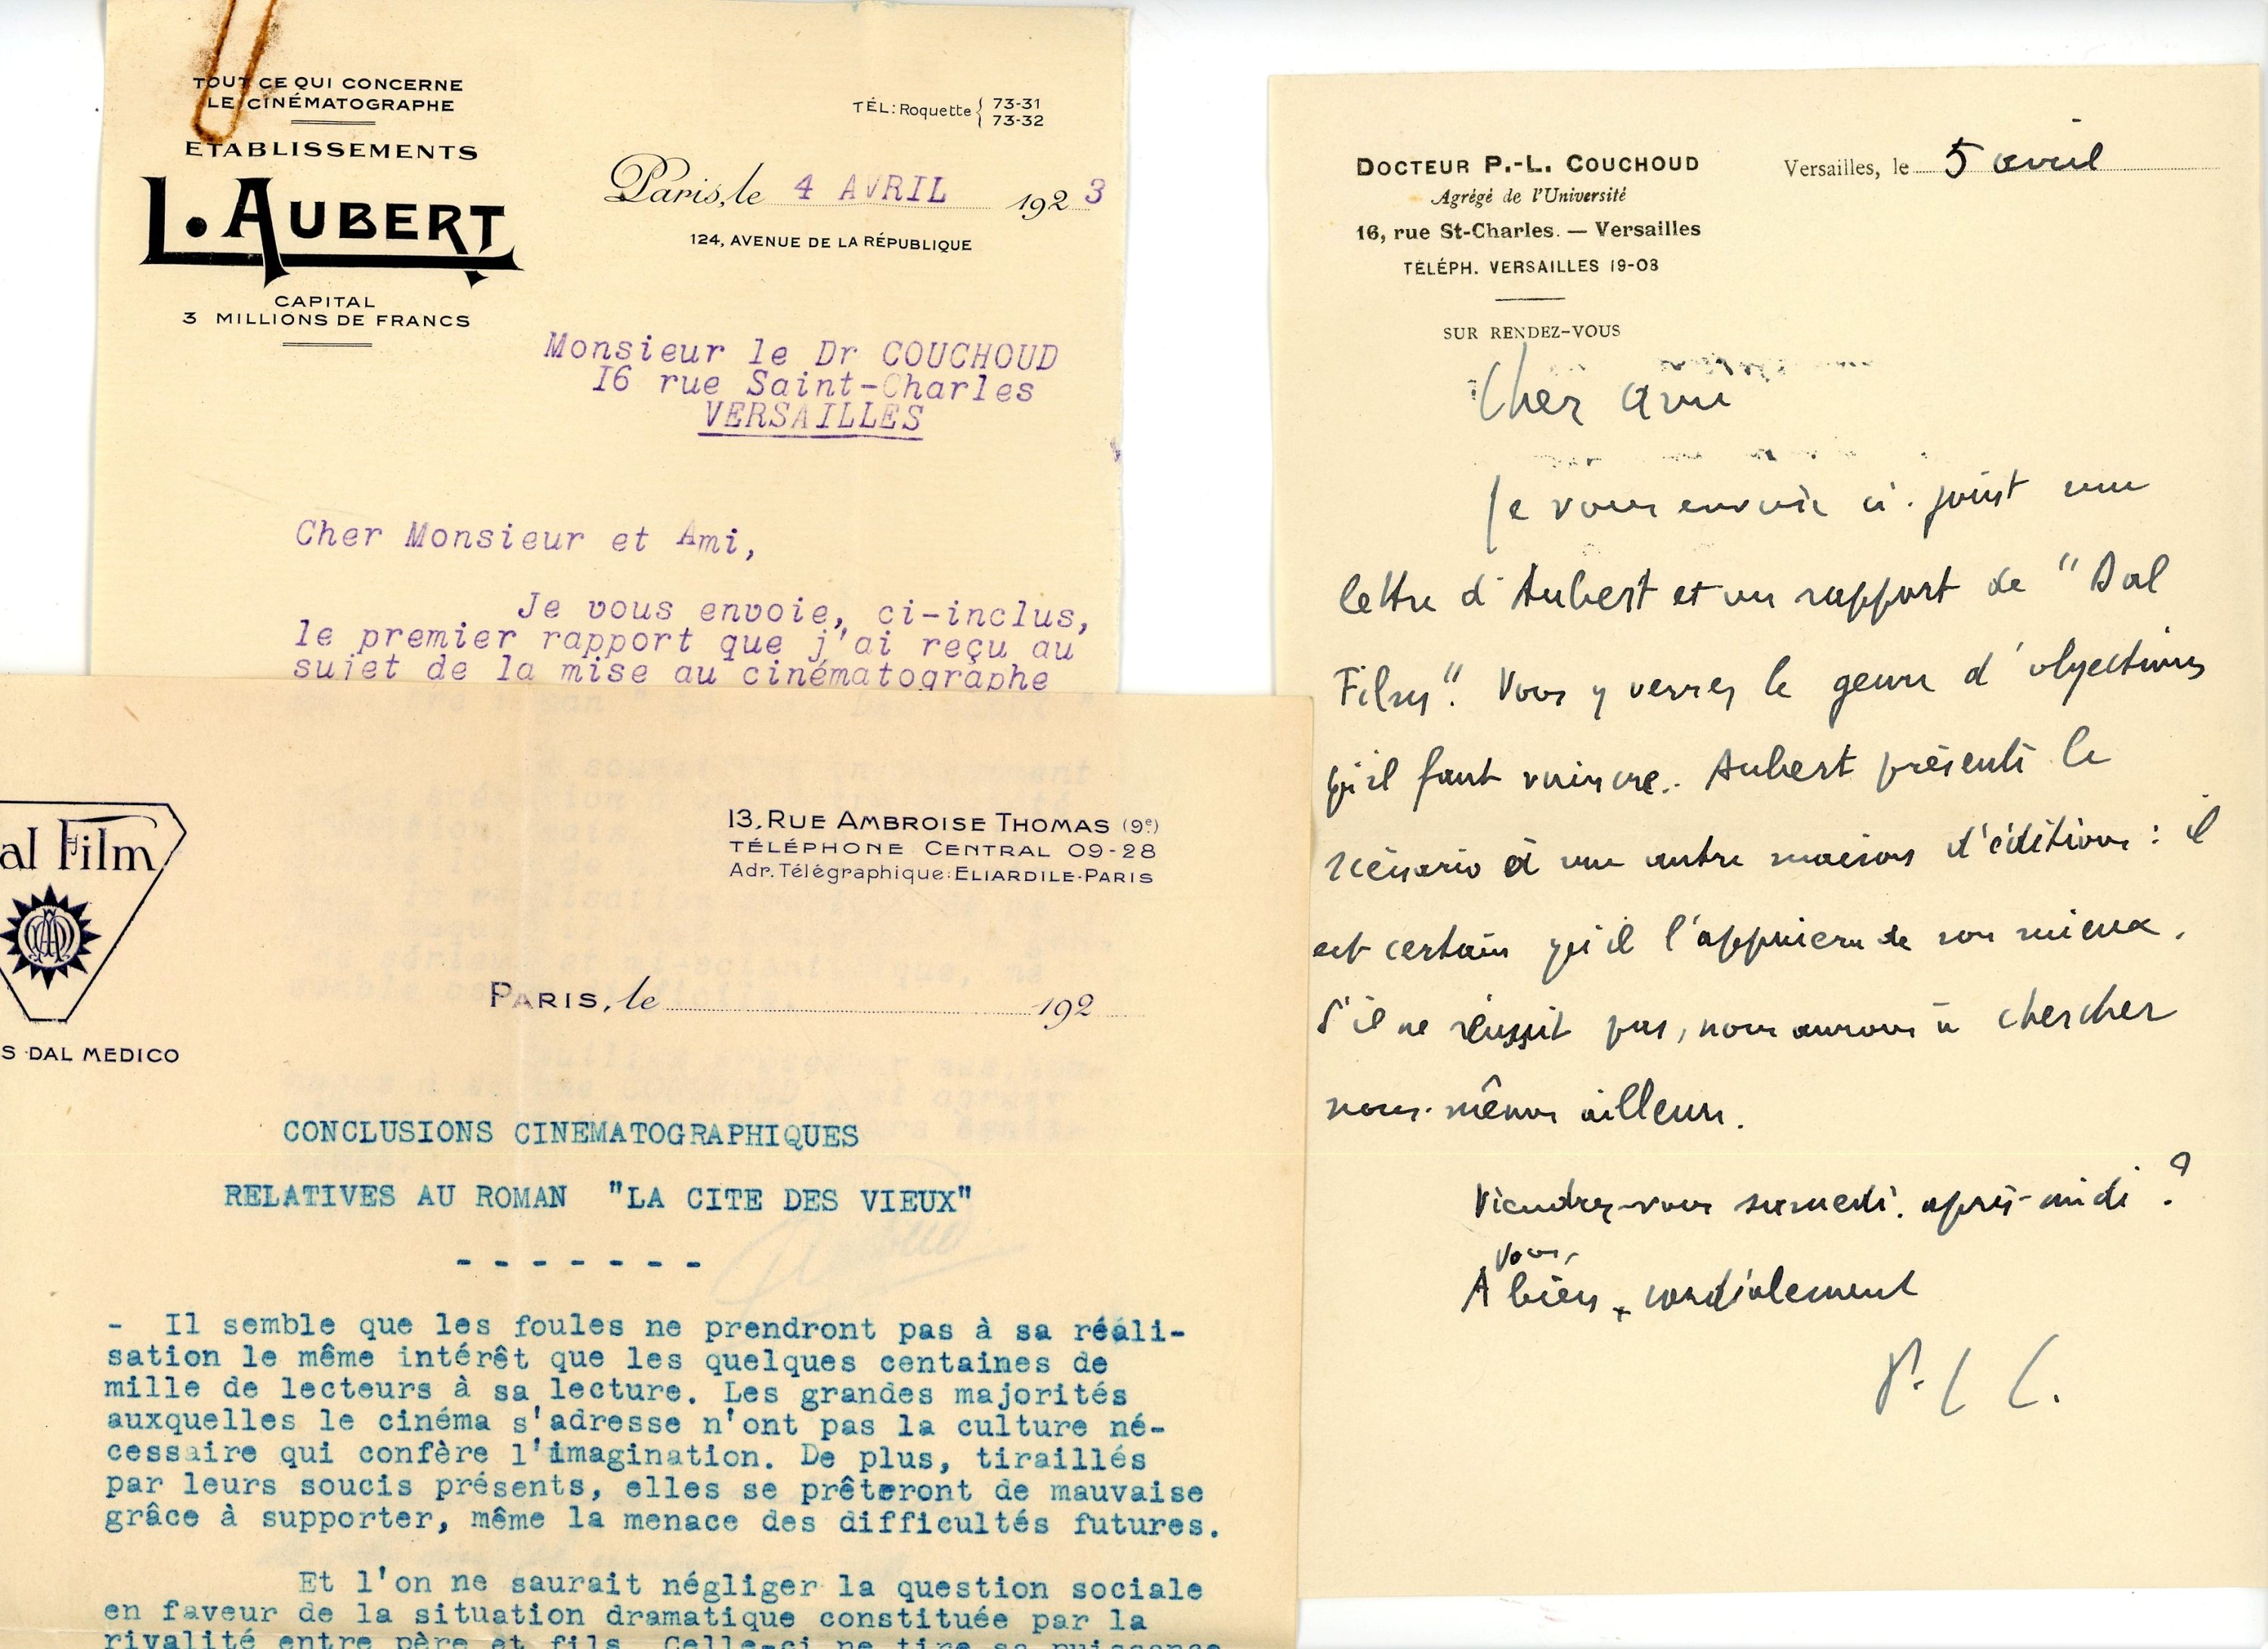 TOUT CE QUI CONCERNE
LE CINÉMATOGRAPHE
ETABLISSEMENTS
L. AUBERT
CAPITAL
3 MILLIONS DE FRANCS
TÉL: Roquette { 73-31
73-32
Paris, le 4 AVRIL 1923
124, AVENUE DE LA RÉPUBLIQUE
Monsieur le Dr COUCHOUD
I6 rue Saint-Charles
VERSAILLES
Cher Monsieur et Ami,
Je vous envoie, ci-inclus,
le premier rapport que j'ai reçu au
sujet de la mise au cinématographe
al Film
S DAL MEDICO
13, RUE AMBROISE THOMAS (9e)
TÉLÉPHONE CENTRAL 09-28
Adr. Télégraphique: ELIARDILE-PARIS
PARIS, le 192
CONCLUSIONS CINEMATOGRAPHIQUES
RELATIVES AU ROMAN "LA CITE DES VIEUX"
- - - - - - -
- Il semble que les foules ne prendront pas à sa réali-
sation le même intérêt que les quelques centaines de
mille de lecteurs à sa lecture. Les grandes majorités
auxquelles le cinéma s'adresse n'ont pas la culture né-
cessaire qui confère l'imagination. De plus, tiraillés
par leurs soucis présents, elles se prêteront de mauvaise
grâce à supporter, même la menace des difficultés futures.
Et l'on ne saurait négliger la question sociale
en faveur de la situation dramatique constituée par la
rivalité entre père et fils. Celle-ci ne tire sa puissance
DOCTEUR P.-L. COUCHOUD
Agrégé de l'Université
16, rue St-Charles. — Versailles
TÉLÉPH. VERSAILLES 19-08
SUR RENDEZ-VOUS
Versailles, le 5 avril
Cher ami
Je vous envoie ci-joint une
lettre d'Aubert et un rapport de "Dal
Films". Vous y verrez le genre d'objections
qu'il faut vaincre. Aubert présente le
scénario à une autre maison d'édition : il
est certain qu'il l'appuiera de son mieux.
S'il ne réussit pas, nous aurons à chercher
nous-mêmes ailleurs.
Viendrez-vous samedi après-midi ?
vous,
A bien cordialement
P. L C.